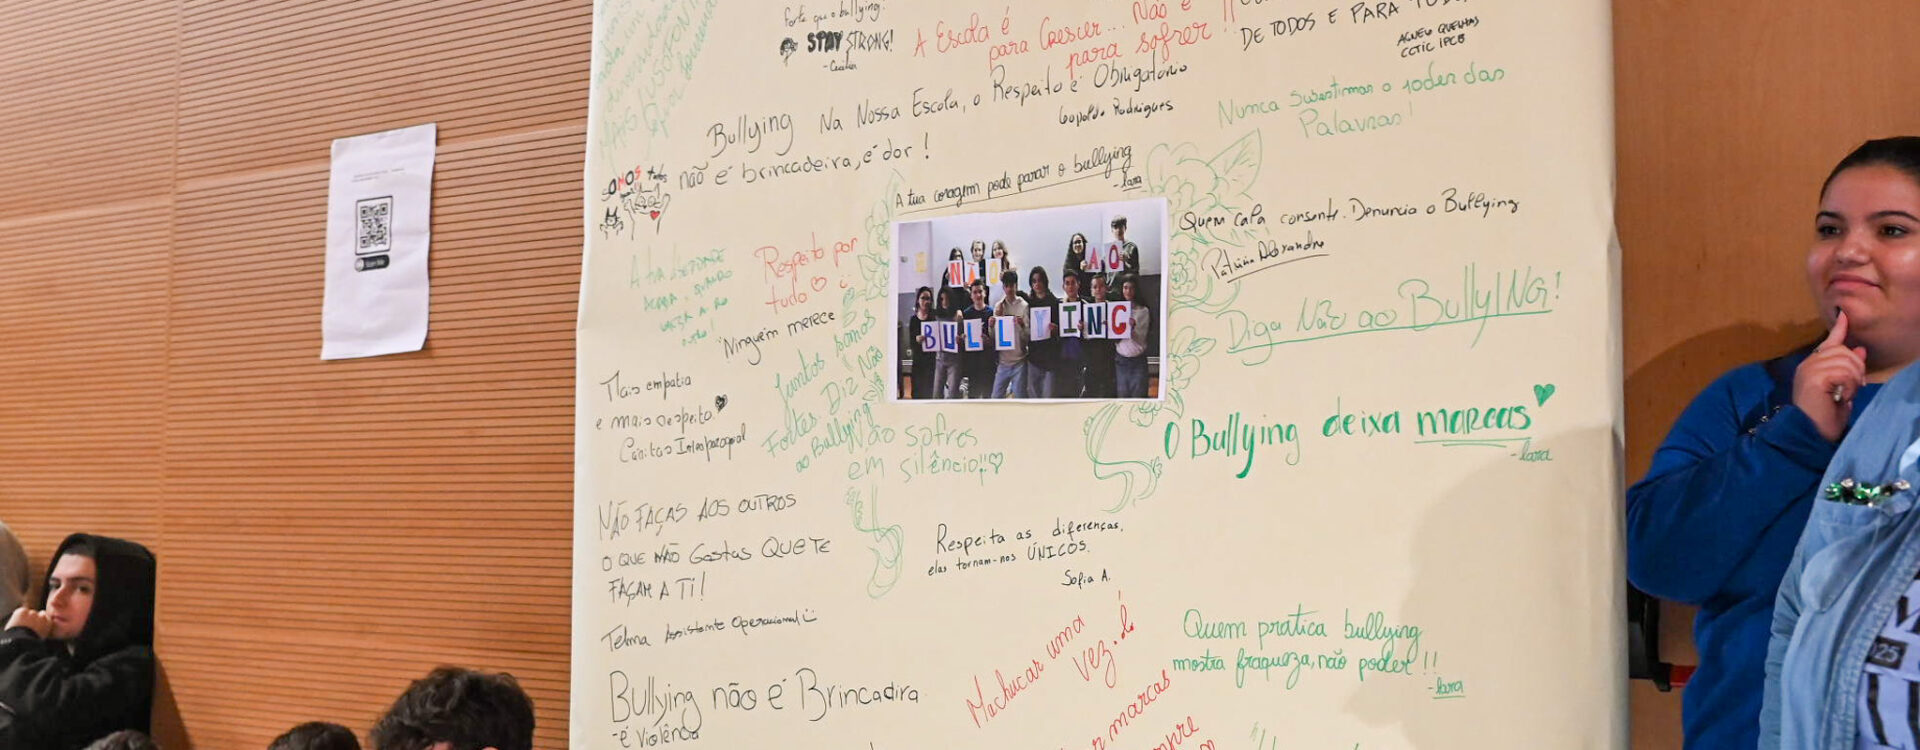 forte que o bullying!
STAY STRONG!
- Cecília
A Escola é
para Crescer... Não é
para sofrer!!
DE TODOS E PARA
AGNELO QUELHAS
CCTIC IPCB
Na Nossa Escola, o Respeito é Obrigatório
Leopoldo Rodrigues
Nunca Subestimar o poder das
Palavras!
Bullying
não é brincadeira, é dor!
SOMOS todos
A tua coragem pode parar o bullying
- Iara
Quem cala consente. Denuncia o Bullying
Patrícia Alexandre
NÃO AO
BULLYING
A tua liberdade
acaba, quando
outro!
Respeito por
tudo ♡
"Ninguém merece
Juntos somos
Fortes. Diz Não
ao Bullying
Diga Não ao BullyING!
Mais empatia
e mais respeito ♥
Cáritas Interparoquial
Não sofres
em silêncio!! ♡
O Bullying deixa marcas ♥
- Iara
NÃO FAÇAS AOS OUTROS
O QUE NÃO Gostas QUE TE
FAÇAM A TI!
Telma Assistente Operacional
Respeita as diferenças,
elas tornam-nos ÚNICOS.
Sofia A.
Machucar uma
vez.
marcas
Quem pratica bullying
mostra fraqueza, não poder!!
- Iara
Bullying não é Brincadira
- é Violência